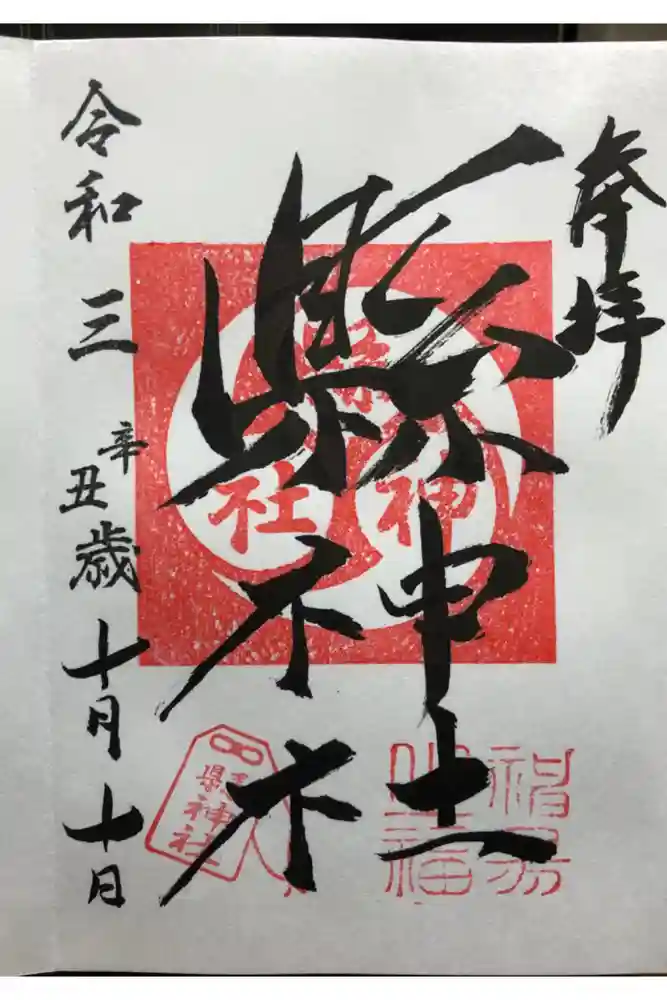 奉拝
縣神社
令和三辛丑歳十月十日
縣神社
縣神社